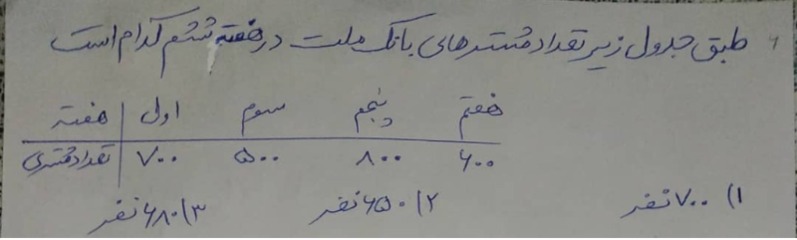 ۶ طبق جدول زیر تعداد مشتریهای بانک ملت در هفته ششم کدام است
هفته | اول سوم پنجم هفتم
تعداد مشتری | ۷۰۰ ۵۰۰ ۸۰۰ ۶۰۰
۱) ۷۰۰ نفر ۲) ۶۵۰ نفر ۳) ۶۸۰ نفر